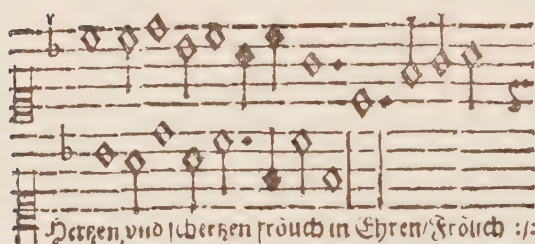 Hertzen vnd schertzen fröuch in Ehren/ Frölich :/: